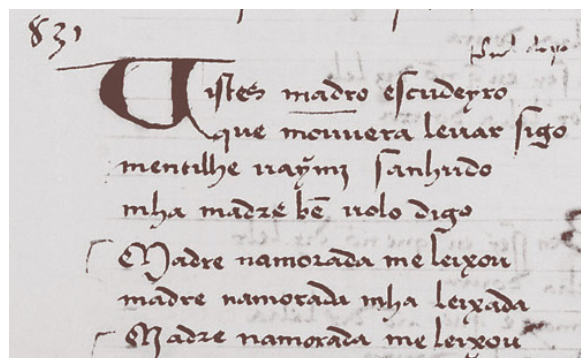 831
Vistes madro escudeyro
que mouuera leuar sigo
mentilhe uaỹmj sanhudo
mha madre bẽ uolo digo
Madre namorada me leixou
madre namorada mha leixada
Madre namorada me leixou